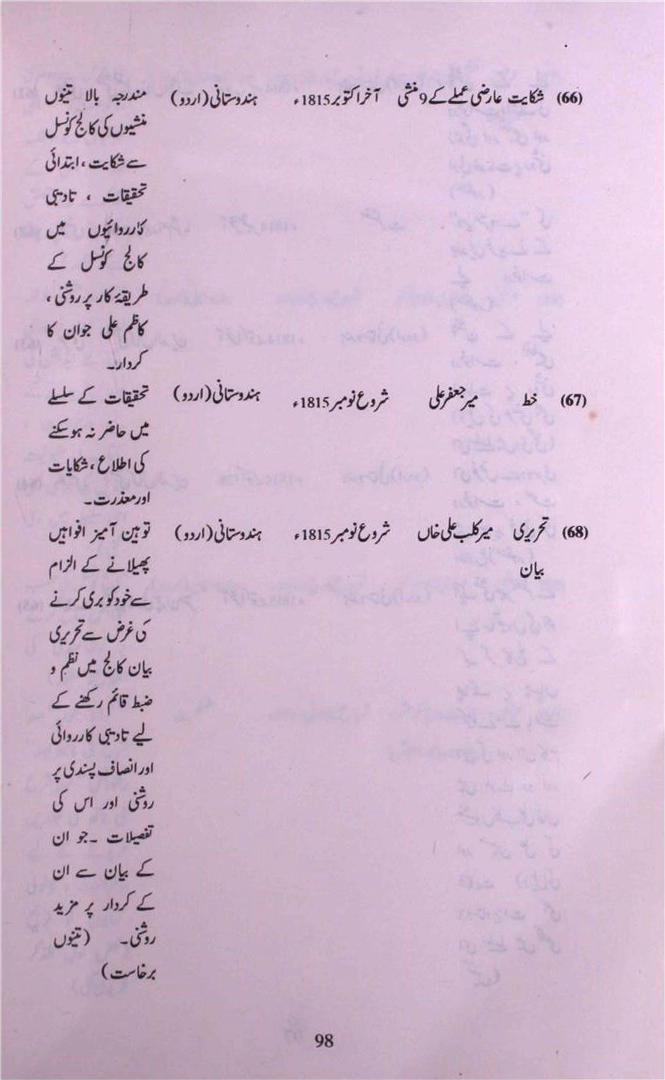 (66) شکایت عارضی عملے کے 9 منشی آخر اکتوبر 1815ء ہندوستانی (اردو) مندرجہ بالا تینوں
منشیوں کی کالج کونسل
سے شکایت، ابتدائی
تحقیقات ، تادیبی
کارروائیوں میں
کالج کونسل کے
طریقۂ کار پر روشنی ،
کاظم علی جوان کا
کردار۔
(67) خط میر جعفر علی شروع نومبر 1815ء ہندوستانی (اردو) تحقیقات کے سلسلے
میں حاضر نہ ہو سکنے
کی اطلاع ، شکایات
اور معذرت۔
(68) تحریری میر کلب علی خاں شروع نومبر 1815ء ہندوستانی (اردو) توہین آمیز افواہیں
بیان پھیلانے کے الزام
سے خود کو بری کرنے
کی غرض سے تحریری
بیان کالج میں نظم و
ضبط قائم رکھنے کے
لیے تادیبی کارروائی
اور انصاف پسندی پر
روشنی اور اس کی
تفصیلات ۔ جو ان
کے بیان سے ان
کے کردار پر مزید
روشنی۔ (تینوں
برخاست)
98